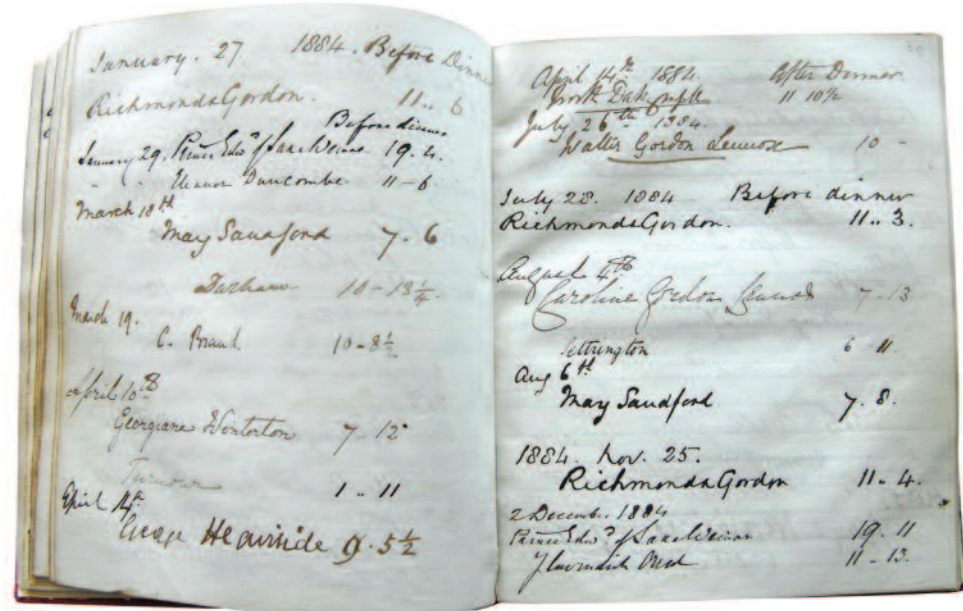 January. 27. 1884. Before Dinner
Richmond & Gordon. 11.. 6
Before dinner
January 29. Prince Edwd of Saxe Weimar 19. 4.
" " Eleanor Duncombe 11-6
March 18th
May Sandford 7. 6
Durham 10-13 1/4
March 19.
C. Brand 10-8 1/2
April 10th
Georgiana Winterton 7 - 12
Turnour 1 .. 11
April 14th
George Heaviside 9. 5 1/2
April 14th 1884. After Dinner
11 10 1/2
July 26th 1884.
Walter Gordon Lennox 10 -
July 28. 1884 Before dinner
Richmond & Gordon. 11.. 3.
August 4th
Caroline Gordon Lennox 7-13
Settrington 6 11.
Aug 6th
May Sandford 7. 8.
1884. Nov. 25.
Richmond & Gordon 11.. 4.
2 December 1884
Prince Edwd of Saxe Weimar 19. 11
11 - 13.